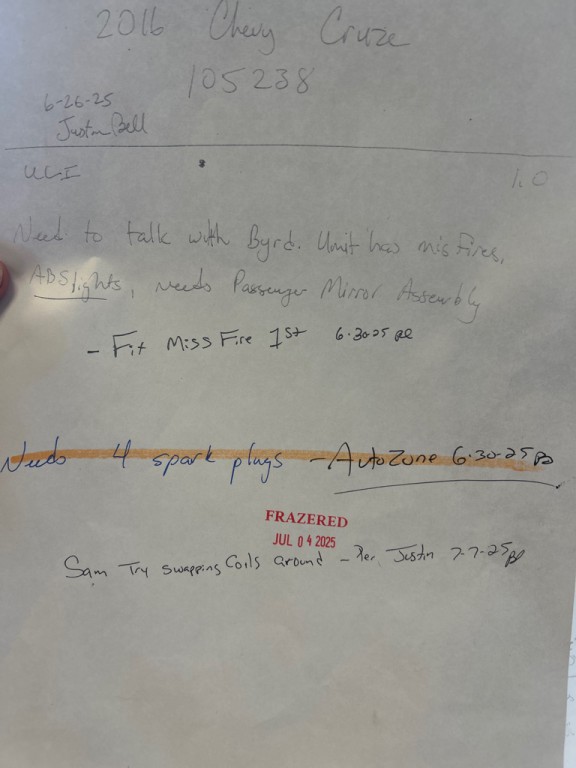 2016 Chevy Cruze
105238
6-26-25
Justin Bell
UCI
1.0
Need to talk with Byrd. Unit has misfires,
ABS lights, needs Passenger Mirror Assembly
- Fix Miss Fire 1st 6-30-25
Needs 4 spark plugs - AutoZone 6-30-25
FRAZERED
JUL 04 2025
Sam Try swapping Coils around - Per Justin 7-7-25